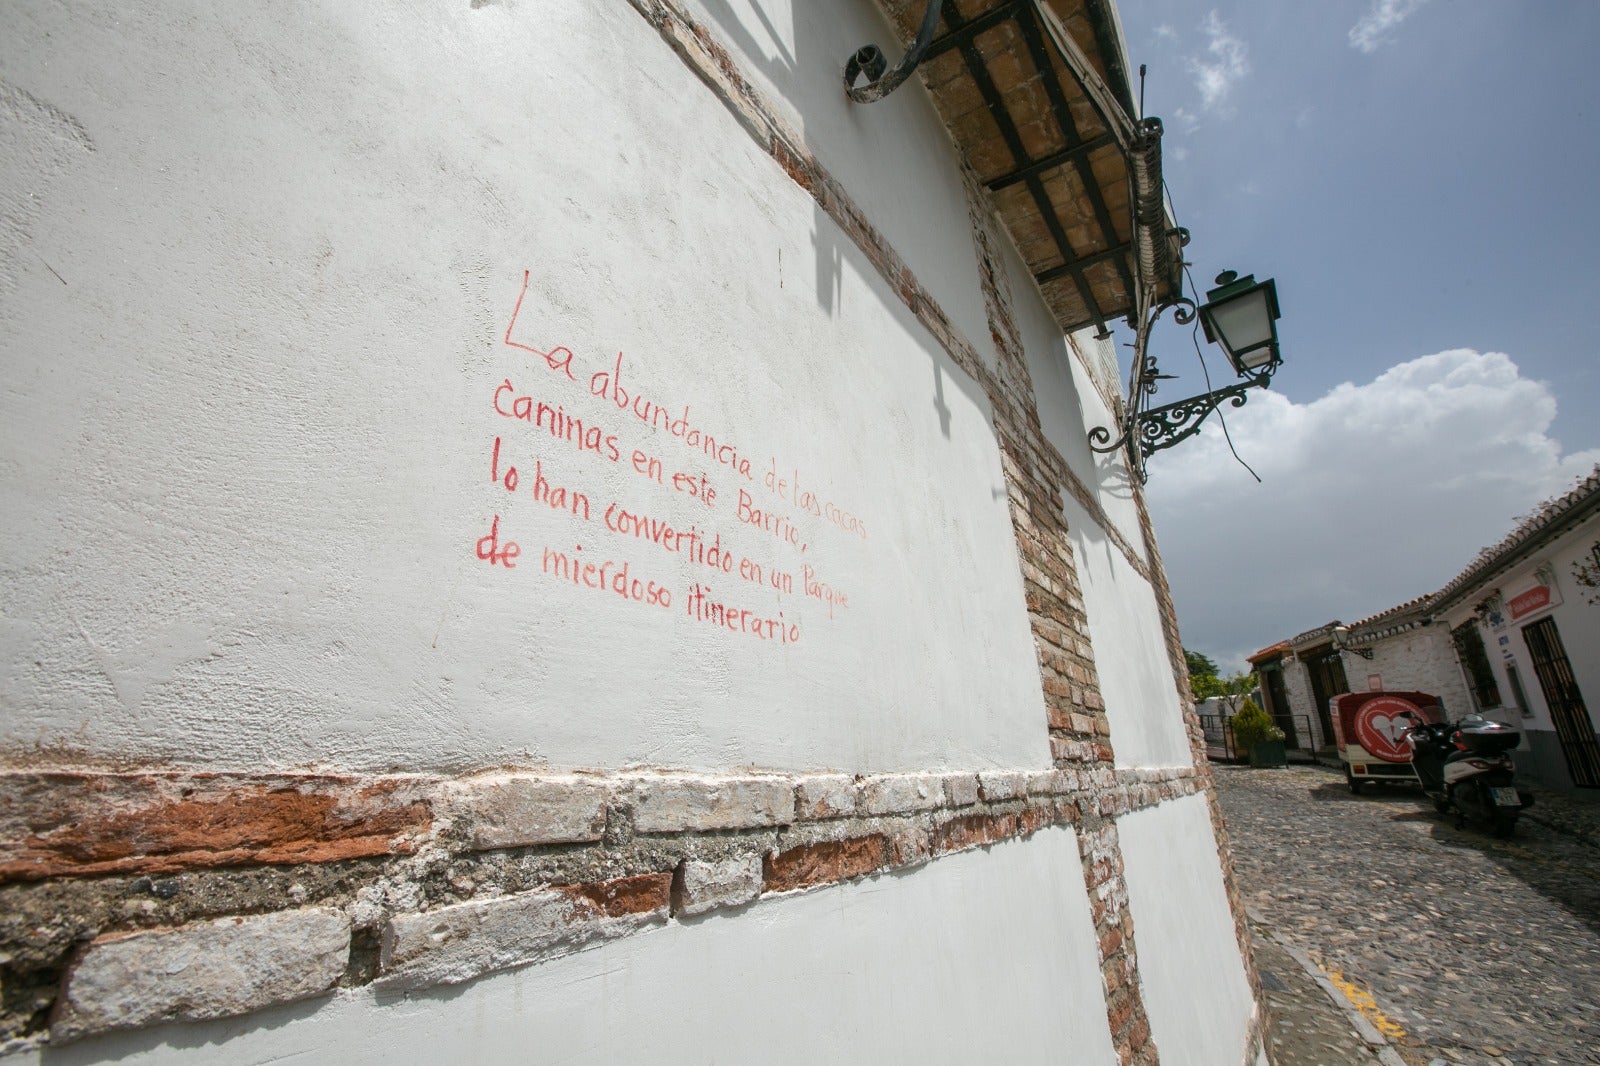 La abundancia de las cacas
caninas en este Barrio,
lo han convertido en un Parque
de mierdoso itinerario